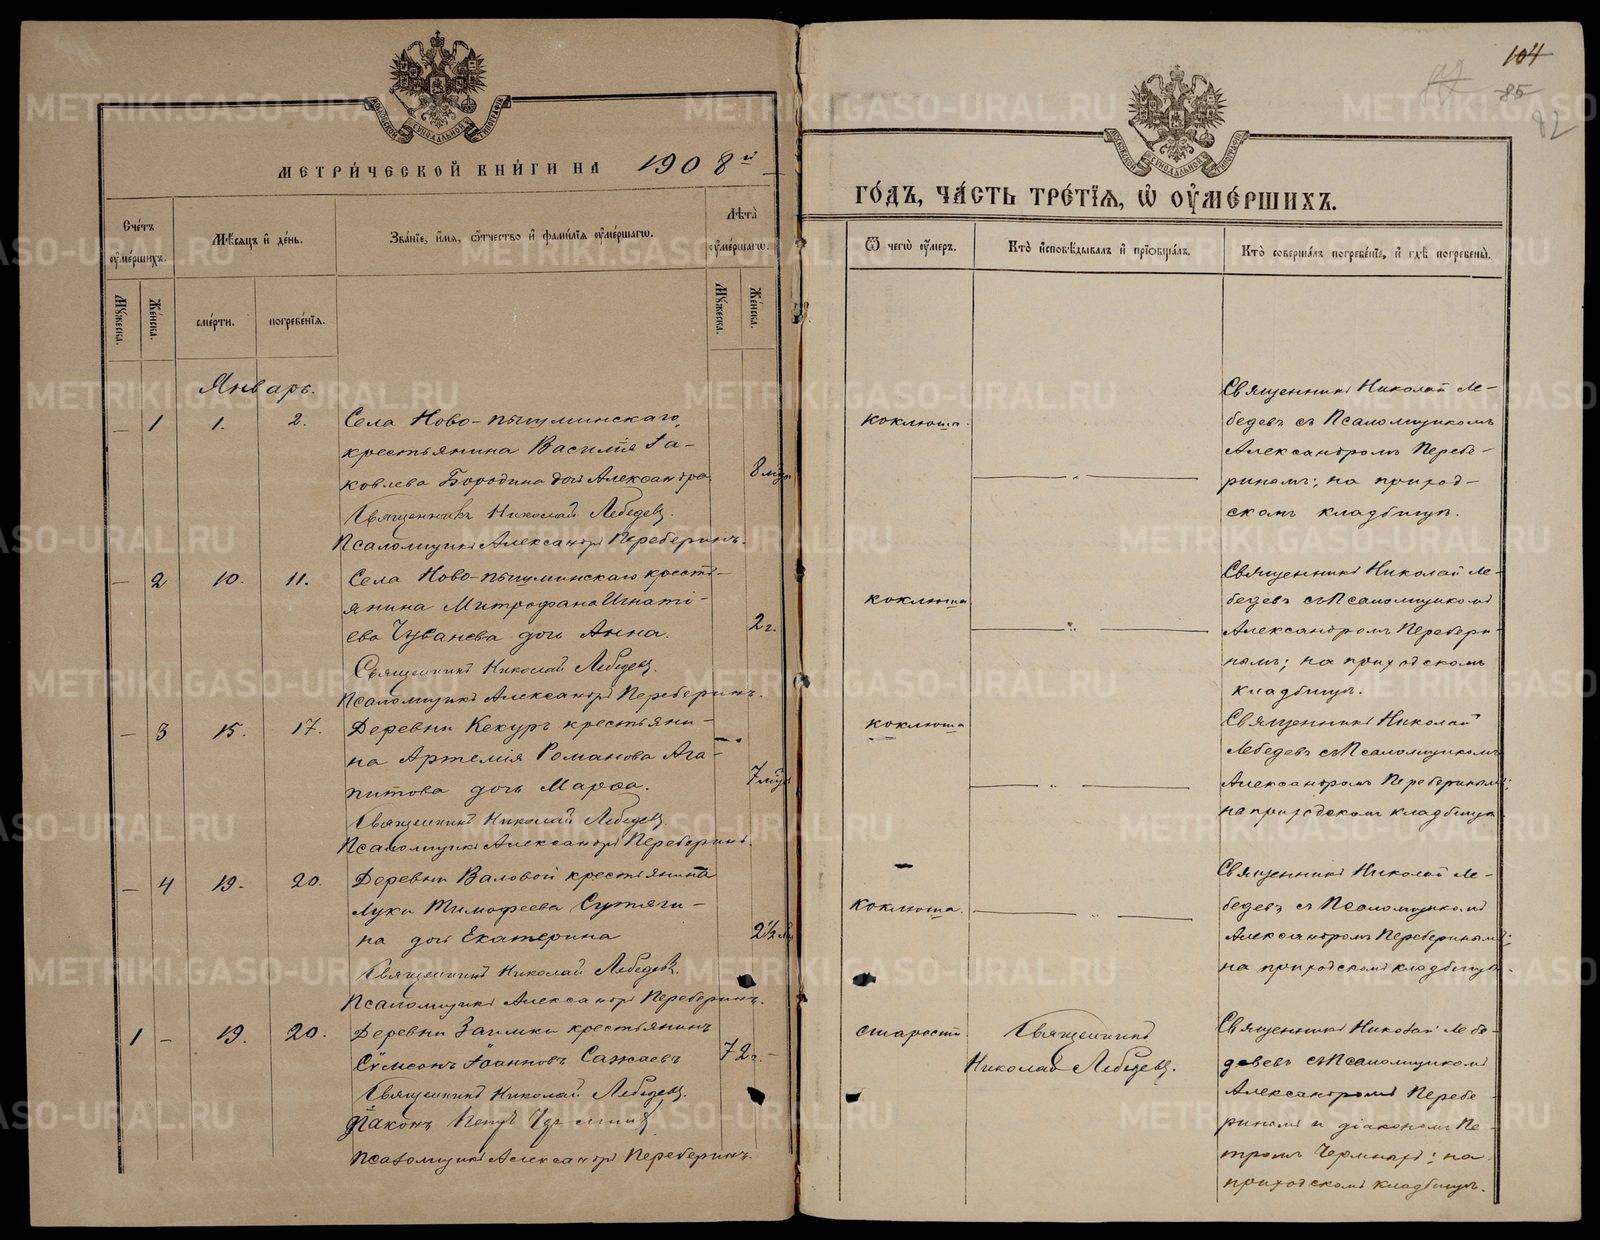 104
85
82
МЕТРИ́ЧЕСКОЙ КНИ́ГИ НА 1908й
ГО́ДЪ, ЧА́СТЬ ТРЕ́ТЇѦ, Ѡ҆ ОУ҆МЕ́РШИХЪ.
Сче́тъ оу҆ме́ршихъ.
Мѣ́сѧцъ и҆ де́нь.
Зва́нїе, и҆́мѧ, ѻ҆́тчество и҆ фами́лїѧ оу҆ме́ршагѡ.
Лѣ́та оу҆ме́ршагѡ.
Ѿ чегѡ̀ оу҆́меръ.
Кто̀ и҆сповѣ́дывалъ и҆ прїѡбща́лъ.
Кто̀ соверша́лъ погребе́нїе, и҆ гдѣ̀ погребены̀.
Мꙋ́жеска.
Же́нска.
сме́рти.
погребе́нїѧ.
Мꙋ́жеска.
Же́нска.
Январь.
— 1 1. 2. Села Ново-пышминскаго
крестьянина Василія Іа-
ковлева Бородина дочь Александра 8 м-цев
Священникъ Николай Лебедевъ.
Псаломщикъ Александръ Переберинъ.
коклюша.
Священникъ Николай Ле-
бедевъ съ Псаломщикомъ
Александромъ Перебе-
ринымъ; на приход-
скомъ кладбищѣ.
— 2 10. 11. Села Ново-пышминскаго кресть-
янина Митрофана Игнаті-
ева Чуванева дочь Анна. 2 г.
Священникъ Николай Лебедевъ.
Псаломщикъ Александръ Переберинъ.
коклюша
Священникъ Николай Ле-
бедевъ съ Псаломщикомъ
Александромъ Перебери-
нымъ; на приходскомъ
кладбищѣ.
— 3 15. 17. Деревни Кекуръ крестьяни-
на Артемія Романова Ага-
питова дочь Марѳа. 7 м-цев
Священникъ Николай Лебедевъ.
Псаломщикъ Александръ Переберинъ.
коклюша
Священникъ Николай
Лебедевъ съ Псаломщикомъ
Александромъ Переберинымъ;
на приходскомъ кладбищѣ.
— 4 19. 20. Деревни Валовой крестьянина
Луки Тимофеева Сутяги-
на дочь Екатерина 2½
Священникъ Николай Лебедевъ.
Псаломщикъ Александръ Переберинъ.
коклюша.
Священникъ Николай Ле-
бедевъ съ Псаломщикомъ
Александромъ Переберинымъ;
на приходскомъ кладбищѣ.
1 — 19. 20. Деревни Заимки крестьянинъ
Сѵмеонъ Іоанновъ Сажаевъ 72 г. —
Священникъ Николай Лебедевъ.
Діаконъ Петръ
Псаломщикъ Александръ Переберинъ.
старости
Священникъ
Николай Лебедевъ.
Священникъ Николай Лебе-
девъ съ Псаломщикомъ
Александромъ Перебе-
ринымъ и діакономъ Пе-
тромъ; на
приходскомъ кладбищѣ.
METRIKI.GASO-URAL.RU